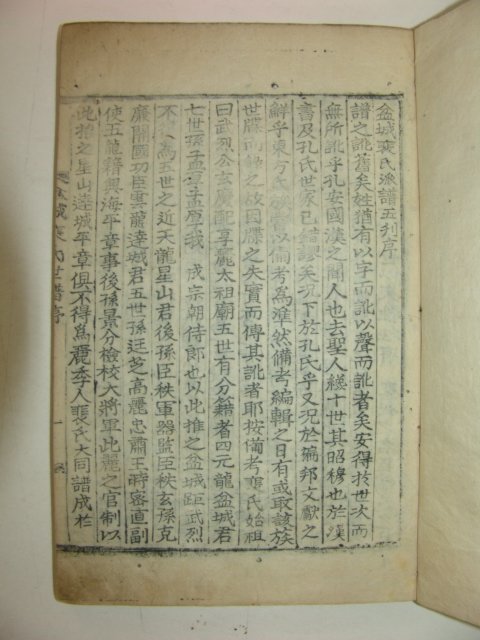 盆城裵氏派譜五刋序
譜之訛舊矣姓猶有以字而訛以聲而訛者矣安得於世次而
無所訛乎孔安國漢之聞人也去聖人纔十世其昭穆也於漢
書及孔氏世家已錯謬矣况下於孔氏乎又况於編邦文獻之
鮮乎東方氏以備考爲準然備考編輯之日有或取該族
世牒而録之故因牒之失實而傳其訛者耶按備考裵氏始祖
曰武烈公玄慶配享麗太祖廟五世有分籍者四元龍盆城君
七世孫孟厚孟厚我 成宗朝侍郎也以此推之盆城距武烈
不爲五世之近天龍星山君後孫臣秩軍器監臣秩玄孫克
廉開國功臣雲龍達城君五世孫廷芝高麗忠肅王時密直副
使五龍籍興海平章事後孫景分檢校大將軍此麗之官制以
此推之星山達城平章俱不得爲麗季人裵氏大同譜成於
盆城裵氏世譜序 一